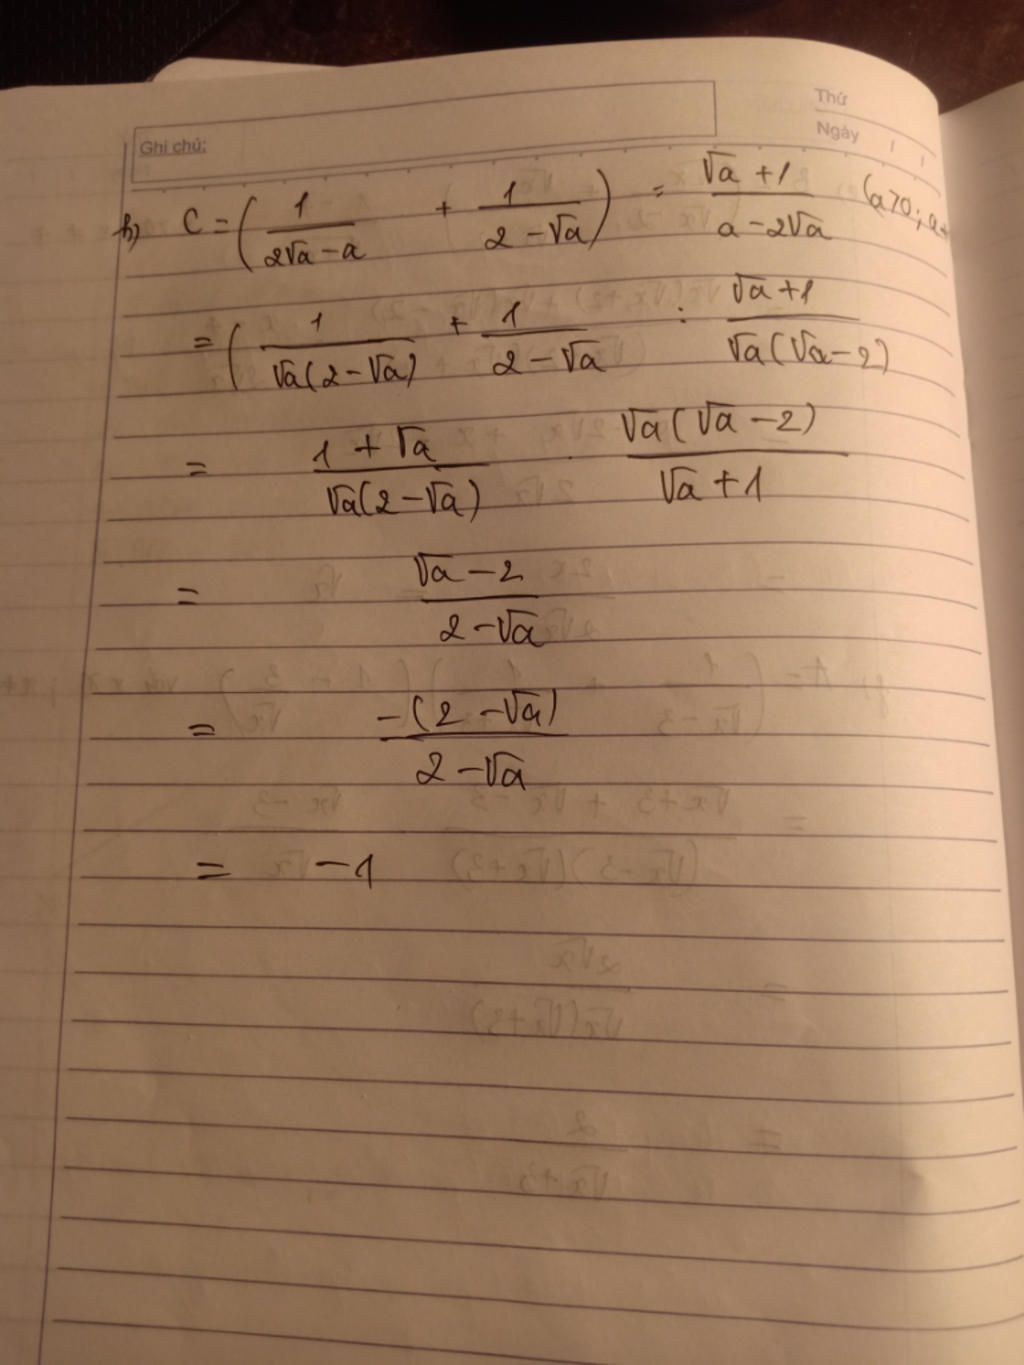 Thứ
Ghi chú:
Ngày
h) C = ( 1/(2√a - a) + 1/(2 - √a) ) = (√a + 1)/(a - 2√a) (a>0; a≠
= ( 1/(√a(2 - √a)) + 1/(2 - √a) : (√a + 1)/(√a(√a - 2))
= (1 + √a)/(√a(2 - √a)) . √a(√a - 2)/(√a + 1)
= (√a - 2)/(2 - √a)
= -(2 - √a)/(2 - √a)
= -1